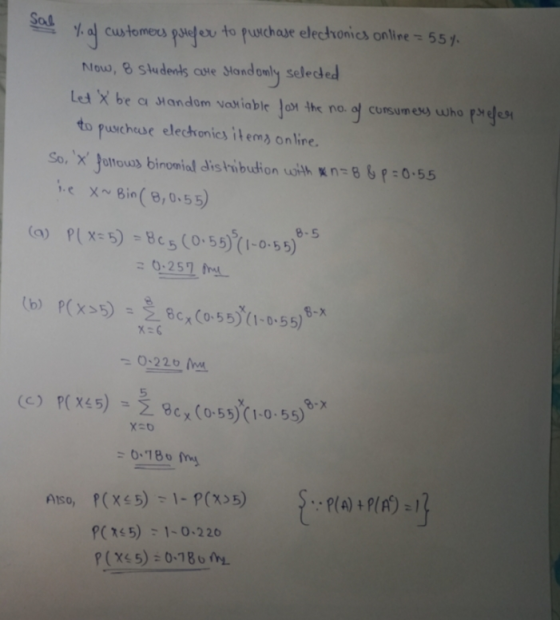 Sol
% of customers prefer to purchase electronics online = 55%.
Now, 8 students are randomly selected
Let 'X' be a random variable for the no. of consumers who prefer
to purchase electronics items online.
So, 'X' follows binomial distribution with n=8 & p=0.55
i.e X~Bin(8,0.55)
(a) P(X=5) = 8C₅(0.55)⁵(1-0.55)⁸⁻⁵
= 0.257 Ans
(b) P(X>5) = ∑ₓ₌₆⁸ 8Cₓ(0.55)ˣ(1-0.55)⁸⁻ˣ
= 0.220 Ans
(c) P(X≤5) = ∑ₓ₌₀⁵ 8Cₓ(0.55)ˣ(1-0.55)⁸⁻ˣ
= 0.780 Ans
Also, P(X≤5) = 1-P(X>5) {∵P(A)+P(Aᶜ)=1}
P(X≤5) = 1-0.220
P(X≤5) = 0.780 Ans